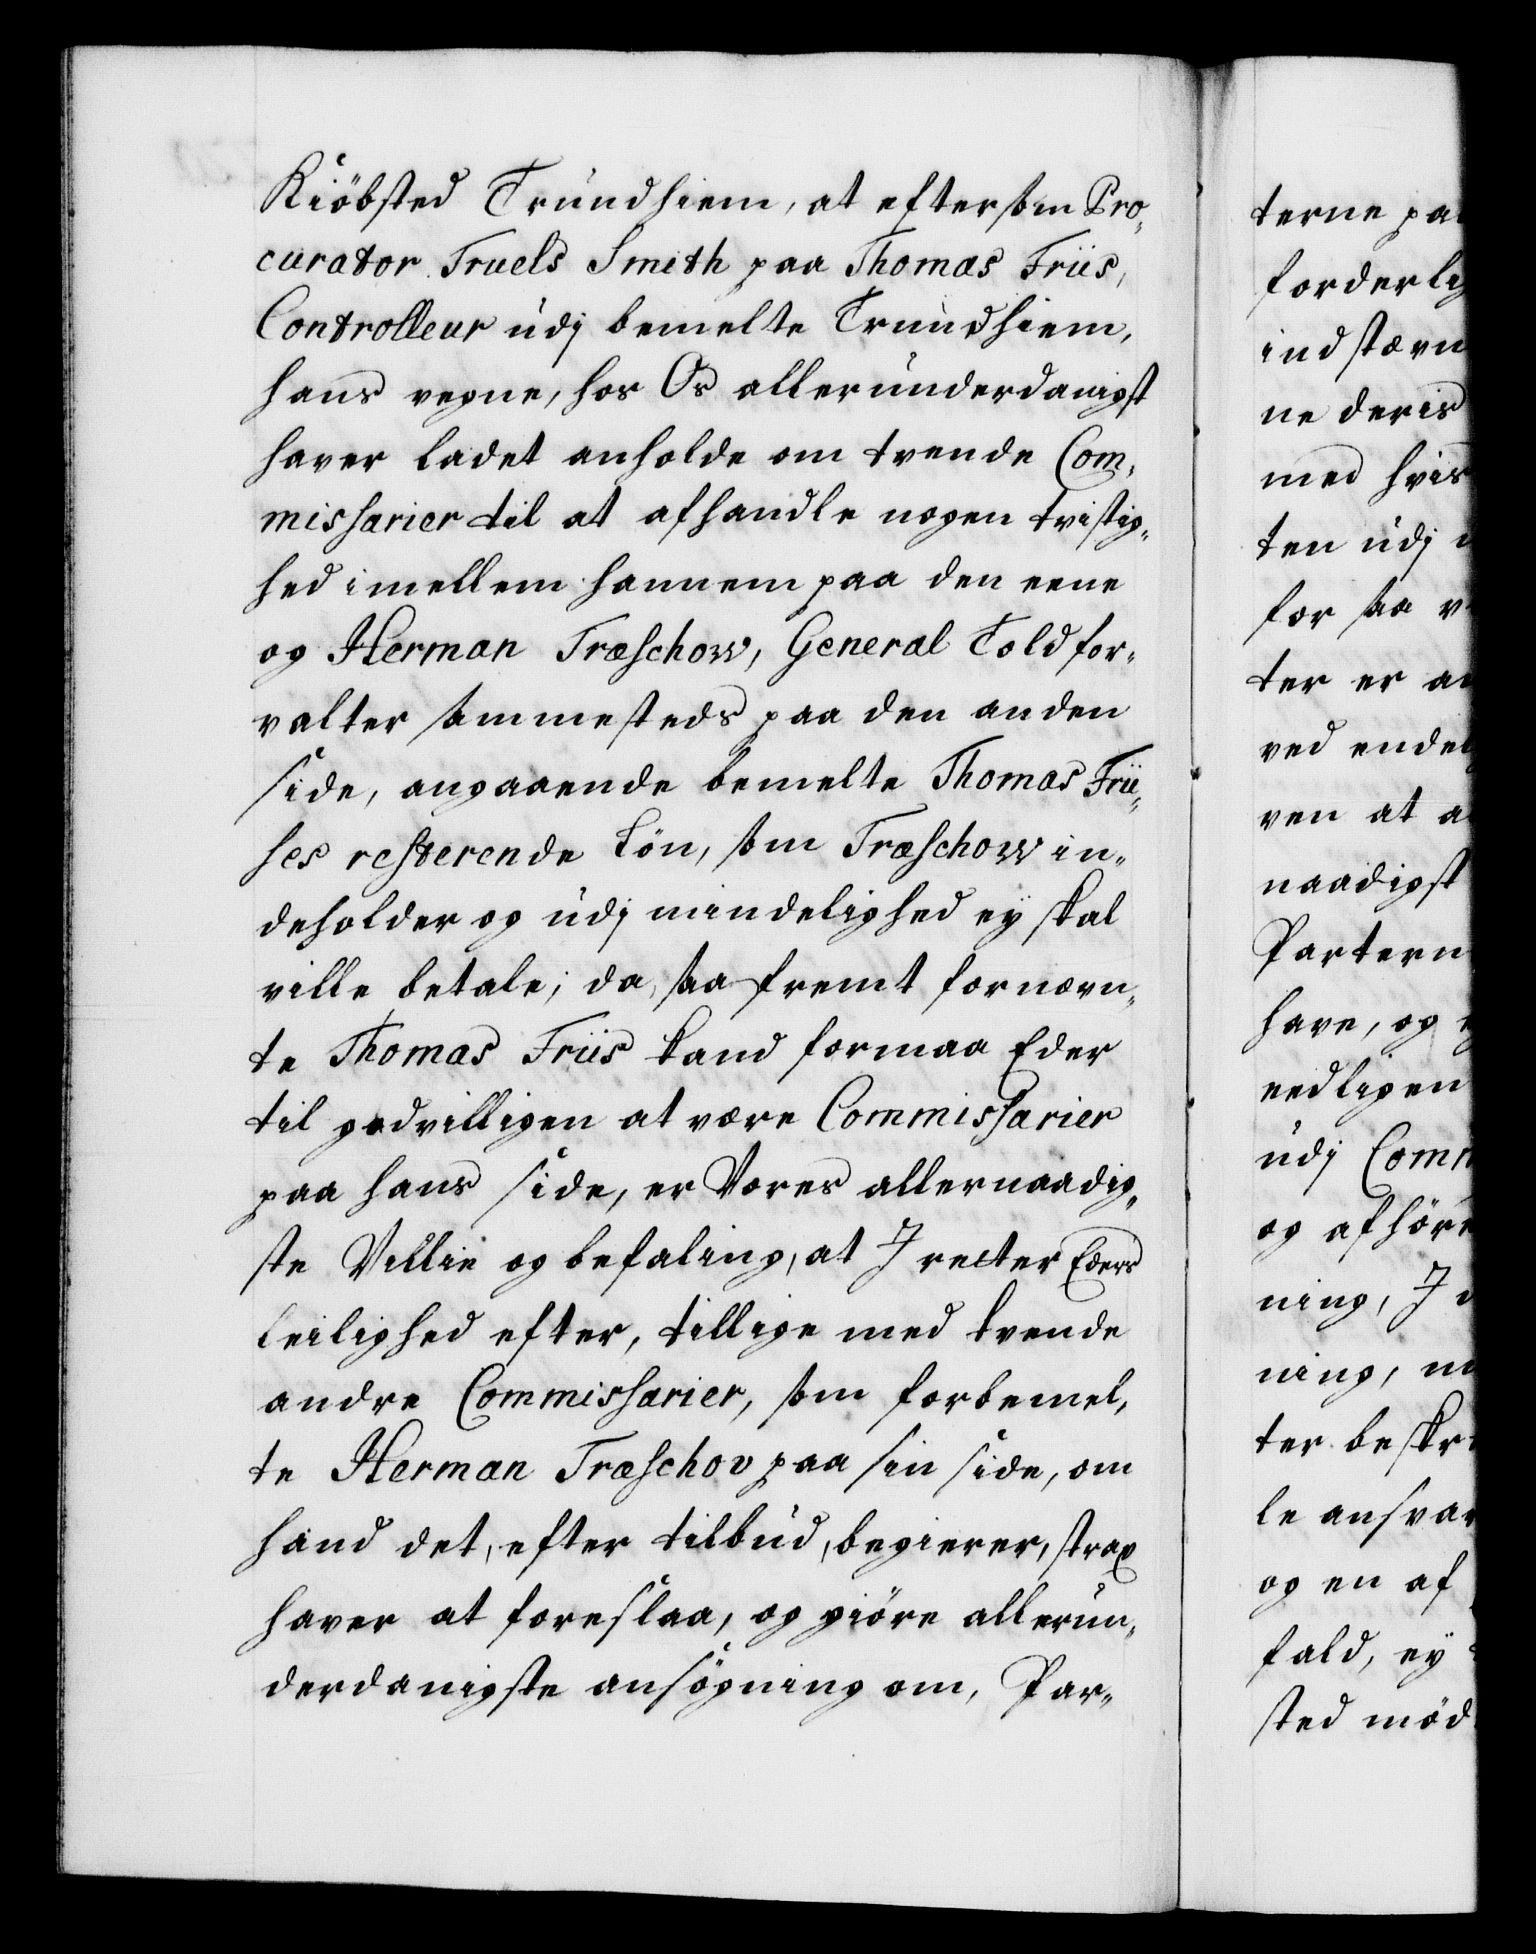 Kiöbsted Trundhiem, at eftersom Pro„
curator Truels Smith paa Thomas Friis,
Controlleur udj bemelte Trundhiem,
hans vegne, hos Os allerunderdanigst
haver ladet anholde om tvende Com„
missarier til at afhandle nogen tvistig„
hed imellem hannem paa den eene
og Herman Træschow, General Toldfor„
valter sammesteds paa den anden
side, angaaende bemelte Thomas Frii„
ses resterende Lön, som Træschow in„
deholder og udj mindelighed ey skal
ville betale; da, saafremt fornævn„
te Thomas Friis kand formaa Eder
til godvilligen at være Commissarier
paa hans side, er Vores allernaadig„
ste Villie og befaling, at J retter Eders
leilighed efter, tillige med tvende
andre Commissarier, som forbemel„
te Herman Træschov paa sin side, om
hand det, efter tilbud, begierer, strax
haver at foreslaa, og giöre allerun„
derdanigste ansögning om, Par„
terne paa
forderlig
indstævn
ne deris
med hvis
ten udj
for saa v
ter er an
ved endel
ven at a
naadigst
Partern
have, og
eedligen
udj Comm
og afhöre
ning, J
ning, m
ter beskre
le ansvar
og en af
fald, ey
sted möd